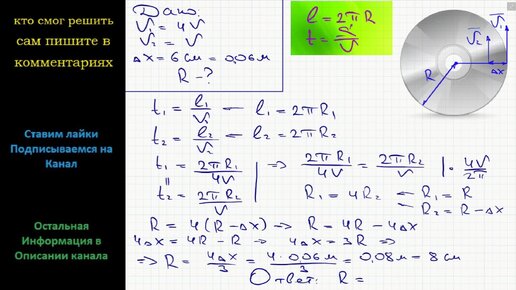 кто смог решить
сам пишите в
комментариях
Ставим лайки
Подписываемся на
Канал
Остальная
Информация в
Описании канала
Дано:
V₁ = 4V
V₂ = V
Δx = 6 см = 0,06 м
R - ?
l = 2πR
R
V₂
V₁
Δx
t₁ = l₁/V₁ ← l₁ = 2πR₁
t₂ = l₂/V₂ ← l₂ = 2πR₂
t₁ = 2πR₁/4V
=
t₂ = 2πR₂/V
⇒ 2πR₁/4V = 2πR₂/V | · 4V/2π
R₁ = 4R₂ ← R₁ = R
← R₂ = R - Δx
R = 4(R - Δx) ⇒ R = 4R - 4Δx
4Δx = 4R - R ⇒ 4Δx = 3R ⇒
⇒ R = 4Δx/3 = 4 · 0,06 м/3 = 0,08 м = 8 см
Ответ: R =